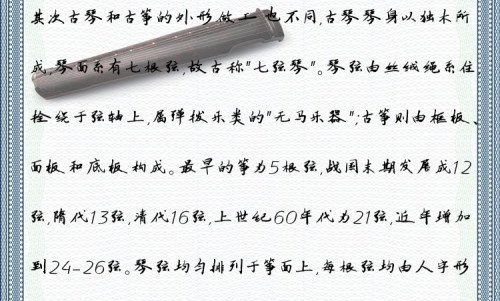 其次古琴和古筝的外形做工也不同,古琴琴身以独木所
成,琴面系有七根弦,故古称"七弦琴"。琴弦由丝绒绳系住,
拴绕于弦轴上,属弹拨乐类的"无马乐器";古筝则由框板、
面板和底板构成。最早的筝为5根弦,战国末期发展成12
弦,隋代13弦,清代16弦,上世纪60年代为21弦,近年增加
到24-26弦。琴弦均匀排列于筝面上,每根弦均由人字形